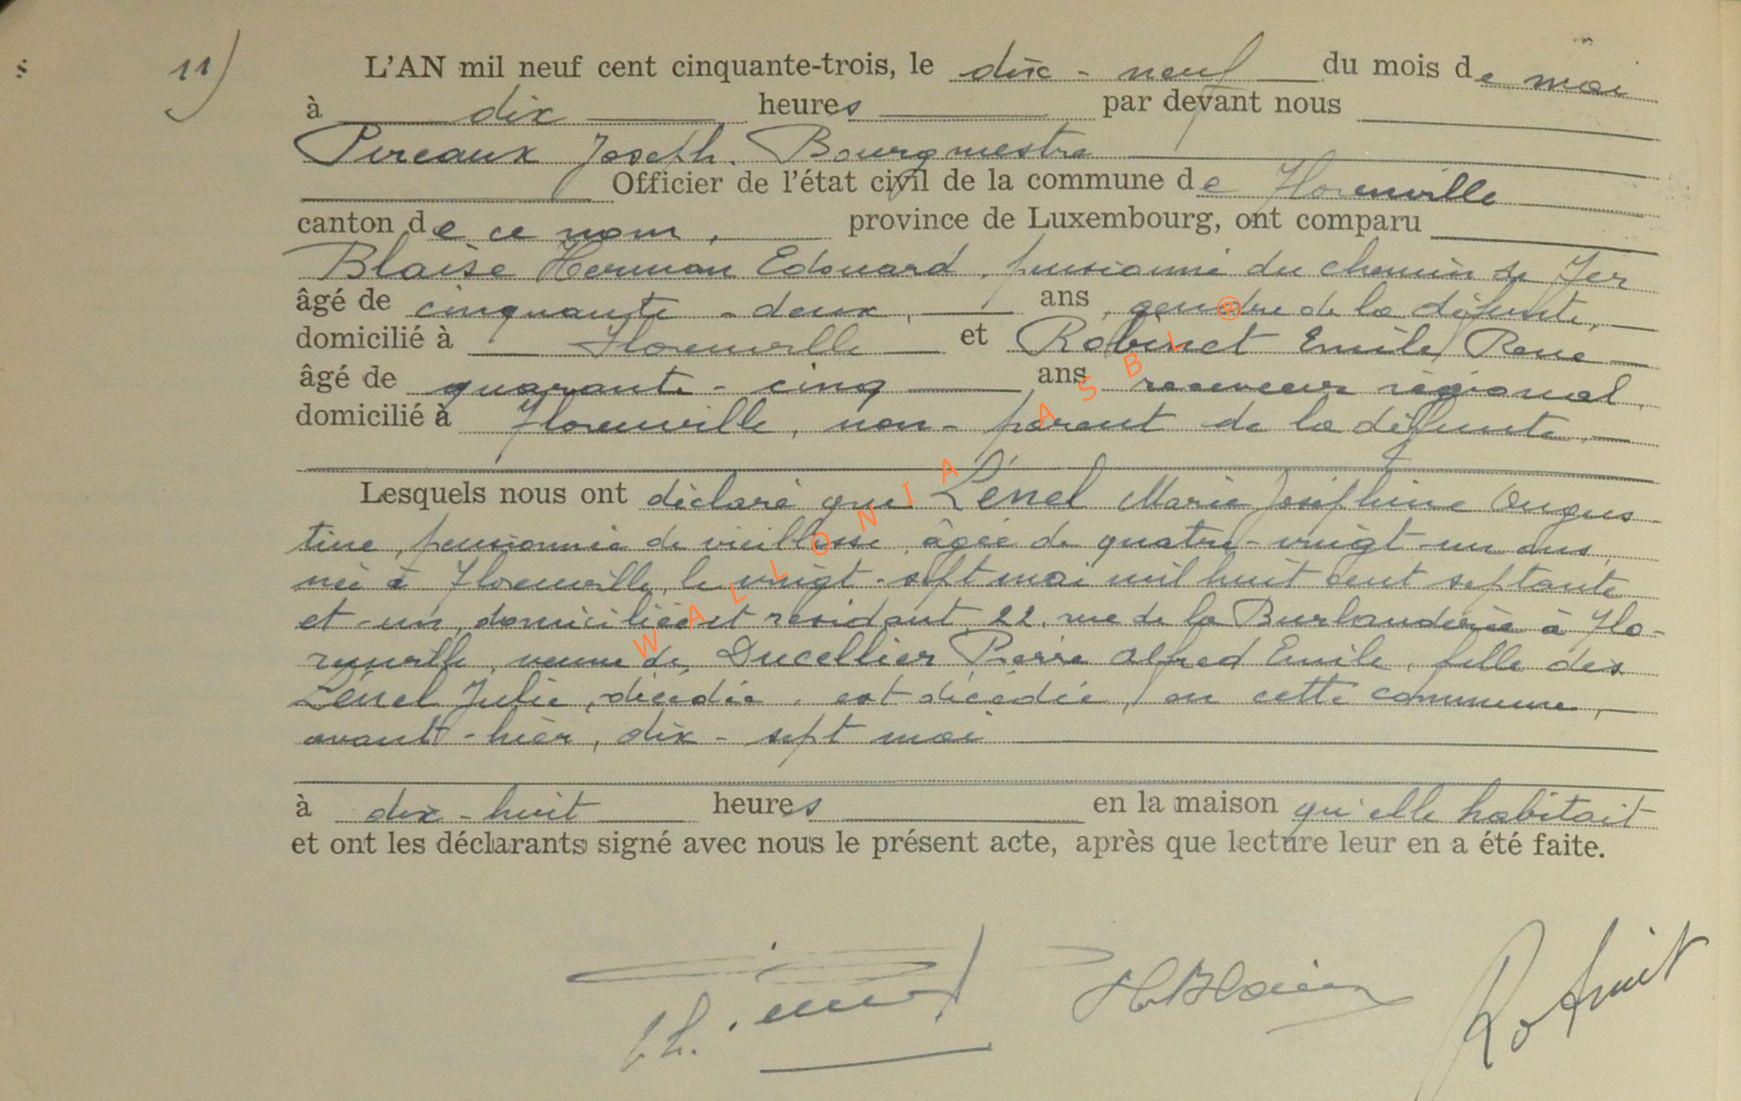 11)
L'AN mil neuf cent cinquante-trois, le dix-neuf du mois de mai
à dix heures par devant nous
Pireaux Joseph. Bourgmestre
Officier de l'état civil de la commune de Florenville
canton de ce nom, province de Luxembourg, ont comparu
Blaise Herman Edouard, pensionné du chemin de Fer
âgé de cinquante-deux, ans, gendre de la défunte,
domicilié à Florenville et Robinet Emile René
âgé de quarante-cinq ans receveur régional,
domicilié à Florenville, non-parent de la défunte.
Lesquels nous ont déclaré que Lénel Marie Joséphine Augus-
tine, pensionnée de vieillesse, âgée de quatre-vingt-un ans,
née à Florenville, le vingt-sept mai mil huit cent septante
et-un, domiciliée et résidant 22, rue de la Burlanderie à Flo-
renville, veuve de Ducellier Pierre Alfred Emile, fille des
Lénel Julie, décédée, est décédée, en cette commune,
avant-hier, dix-sept mai
à dix-huit heures en la maison qu'elle habitait
et ont les déclarants signé avec nous le présent acte, après que lecture leur en a été faite.
HBlaise
Robinet
WALLONIA ASBL ®